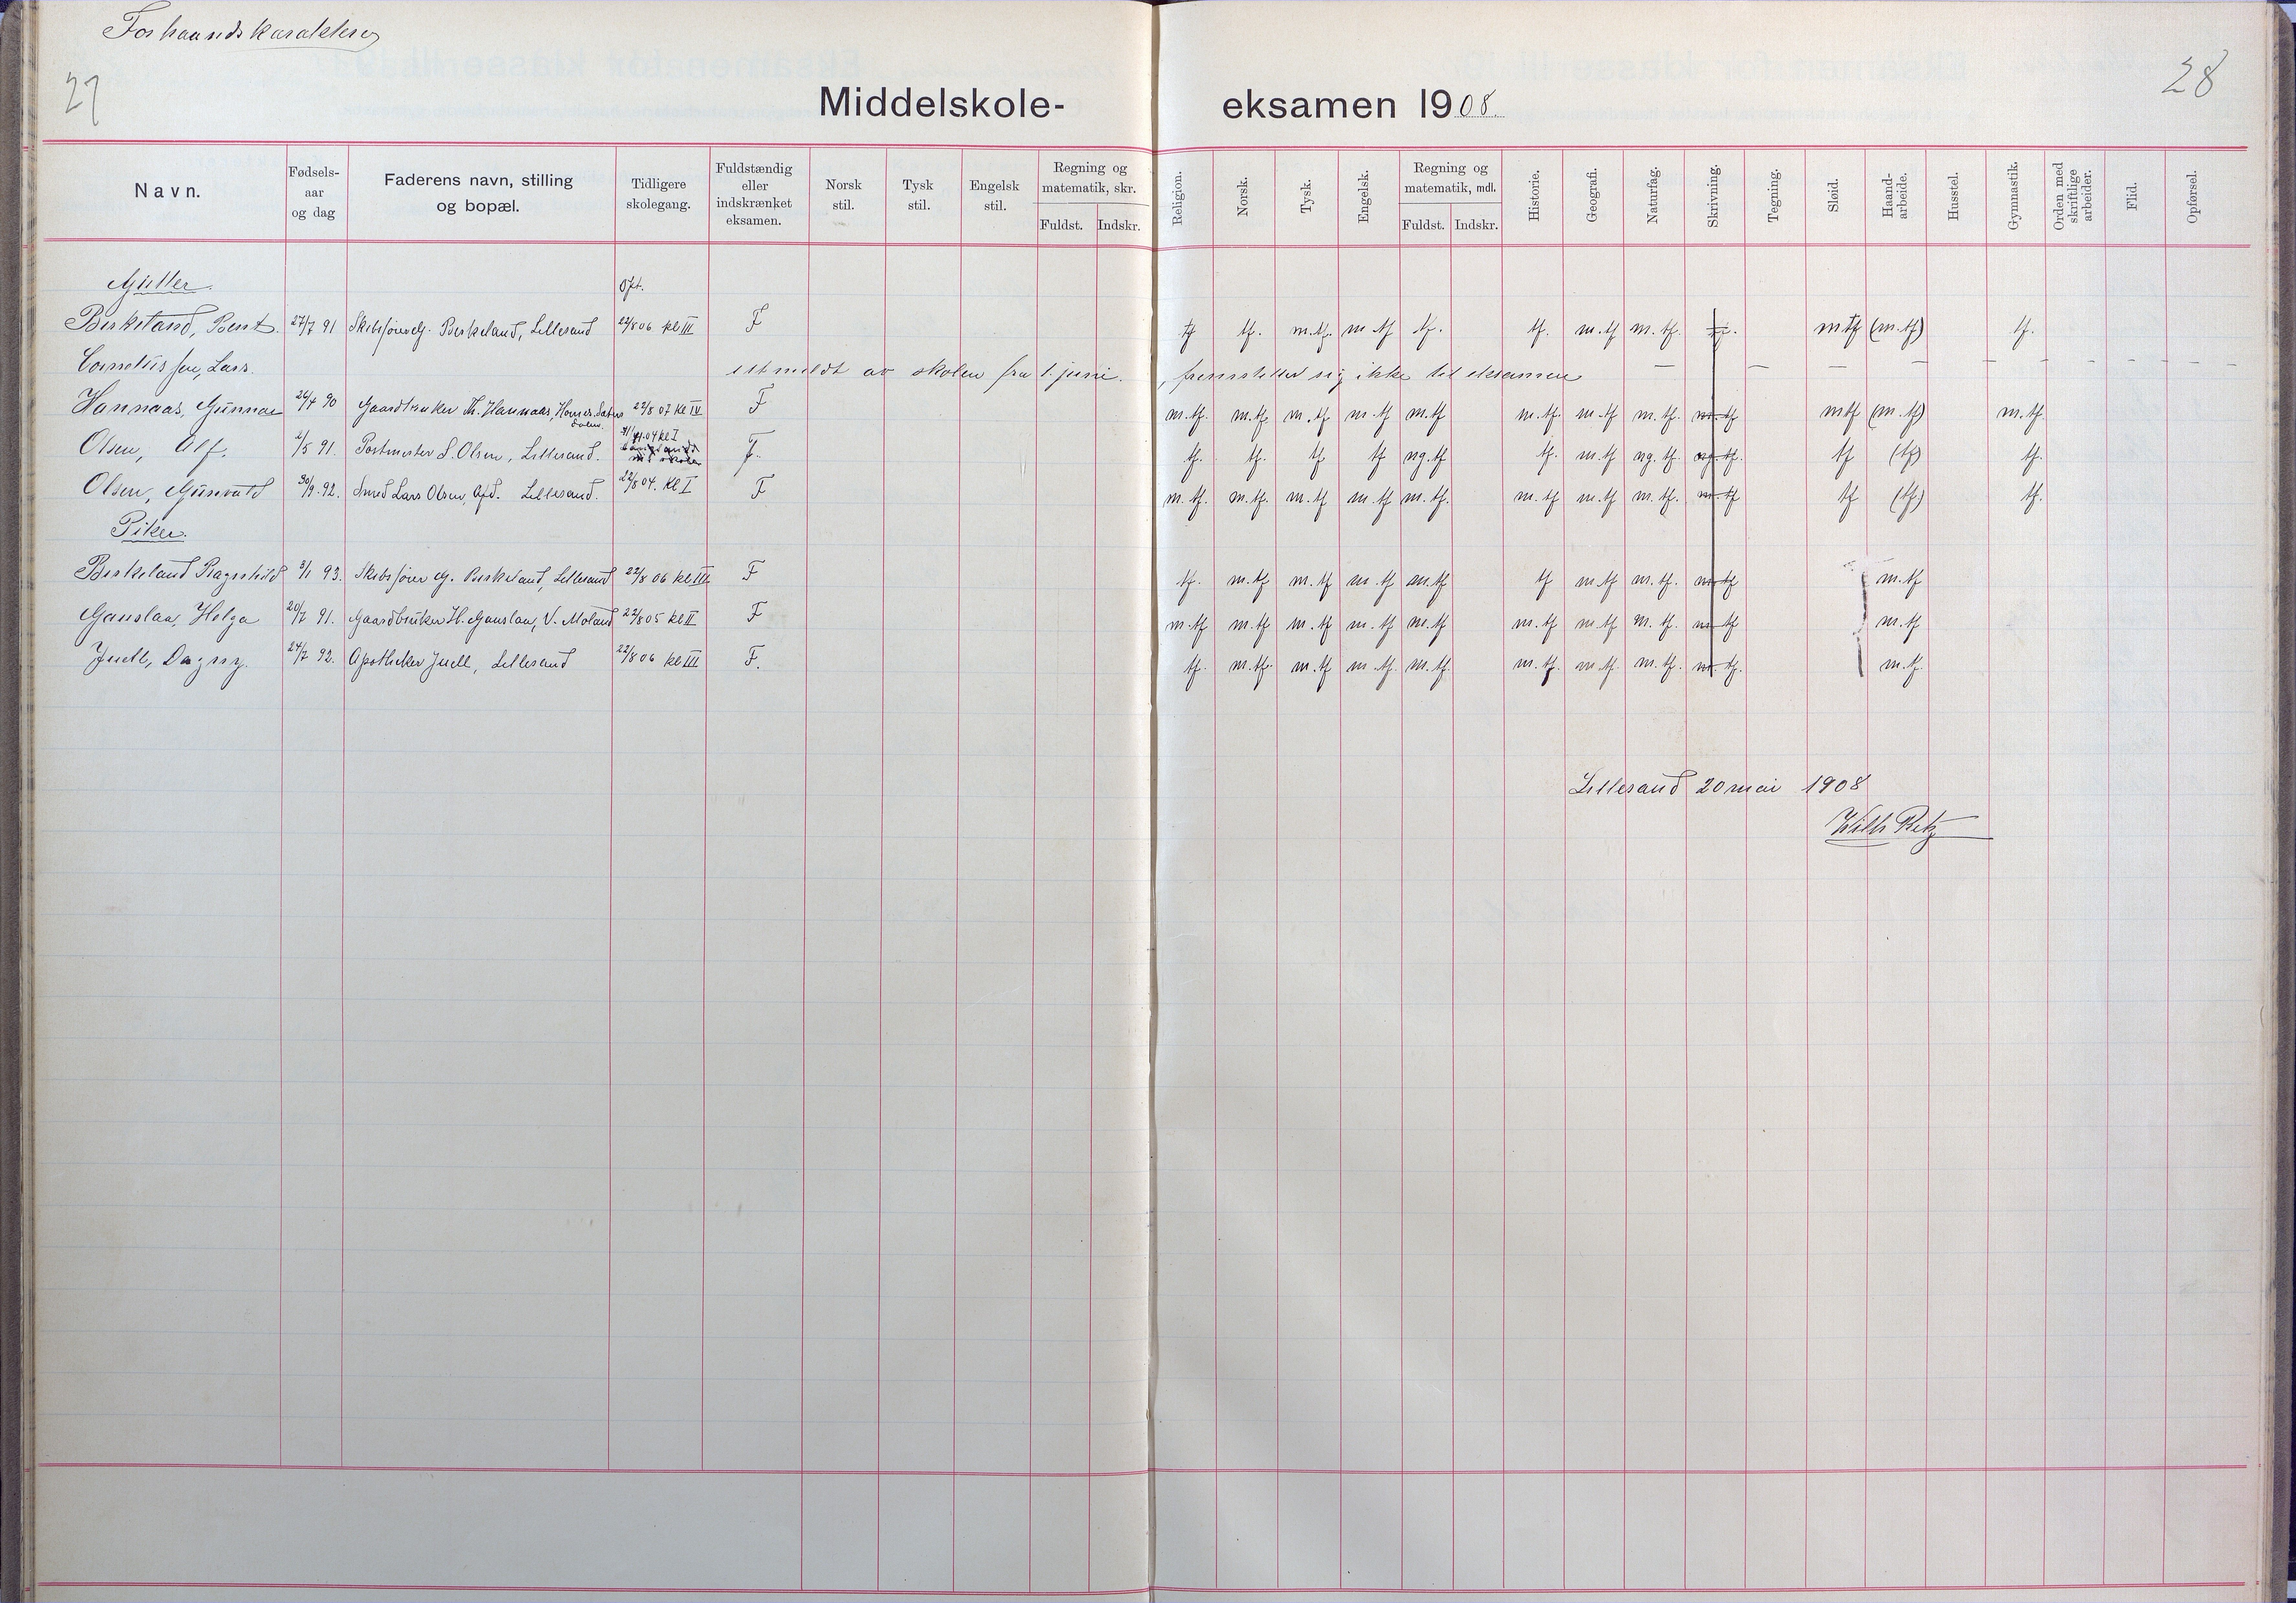 Forhaandskarakterer
27
28
Middelskole- eksamen 1908.
Navn. Fødsels- aar og dag Faderens navn, stilling og bopæl. Tidligere skolegang. Fuldstændig eller indskrænket eksamen. Norsk stil. Tysk stil. Engelsk stil. Regning og matematik, skr. Fuldst. Indskr. Religion. Norsk. Tysk. Engelsk. Regning og matematik, mdl. Fuldst. Indskr. Historie. Geografi. Naturfag. Skrivning. Tegning. Sløid. Haand- arbeide. Husstel. Gymnastik. Orden med skriftlige arbeider. Flid. Opførsel.
Gutter. Opt.
Birkeland, Bernt. 27/7 91 Skibsfører G. Birkeland, Lillesand 22/8 06 kl III F tf tf. m.tf. m.tf tf. tf. m.tf m.tf. tf. mtf (m.tf) tf.
Corneliussen, Lars. utmeldt av skolen fra 1. juni. , fremstiller sig ikke til eksamen — — — — — — — — — —
Hannaas, Gunnar 26/4 90 Gaardbruker Th. Hannaas, 22/8 07 kl IV F m.tf. m.tf. m.tf m.tf m.tf m.tf. m.tf m.tf. m.tf mtf (m.tf) m.tf.
Olsen, Alf. 2/5 91. Postmester S. Olsen, Lillesand. 04 kl I F. tf. tf. tf tf ng.tf tf. m.tf ng.tf. ng.tf. tf (tf) tf.
Olsen, Gunvald 30/9. 92. Smed Lars Olsen, Lillesand. 22/8 04. kl I F m.tf. m.tf. m.tf m.tf m.tf. m.tf m.tf m.tf. m.tf tf (tf.) tf.
Piker.
Birkeland Ragnhild 3/1 93. Skibsfører G. Birkeland, Lillesand 22/8 06 kl III F tf. m.tf m.tf m.tf m.tf tf m.tf m.tf. m.tf m.tf
Gauslaa, Helga 20/7 91. Gaardbruker H. Gauslaa, V. Moland 22/8 05 kl II F m.tf m.tf m.tf m.tf m.tf m.tf m.tf m.tf. m.tf m.tf
Juell, Dagny. 24/7 92. Apotheker Juell, Lillesand 22/8 06 kl III F. tf. m.tf. m.tf m.tf. m.tf. m.tf. m.tf. m.tf. m.tf. m.tf.
Lillesand 20 mai 1908
Wilh Ritz